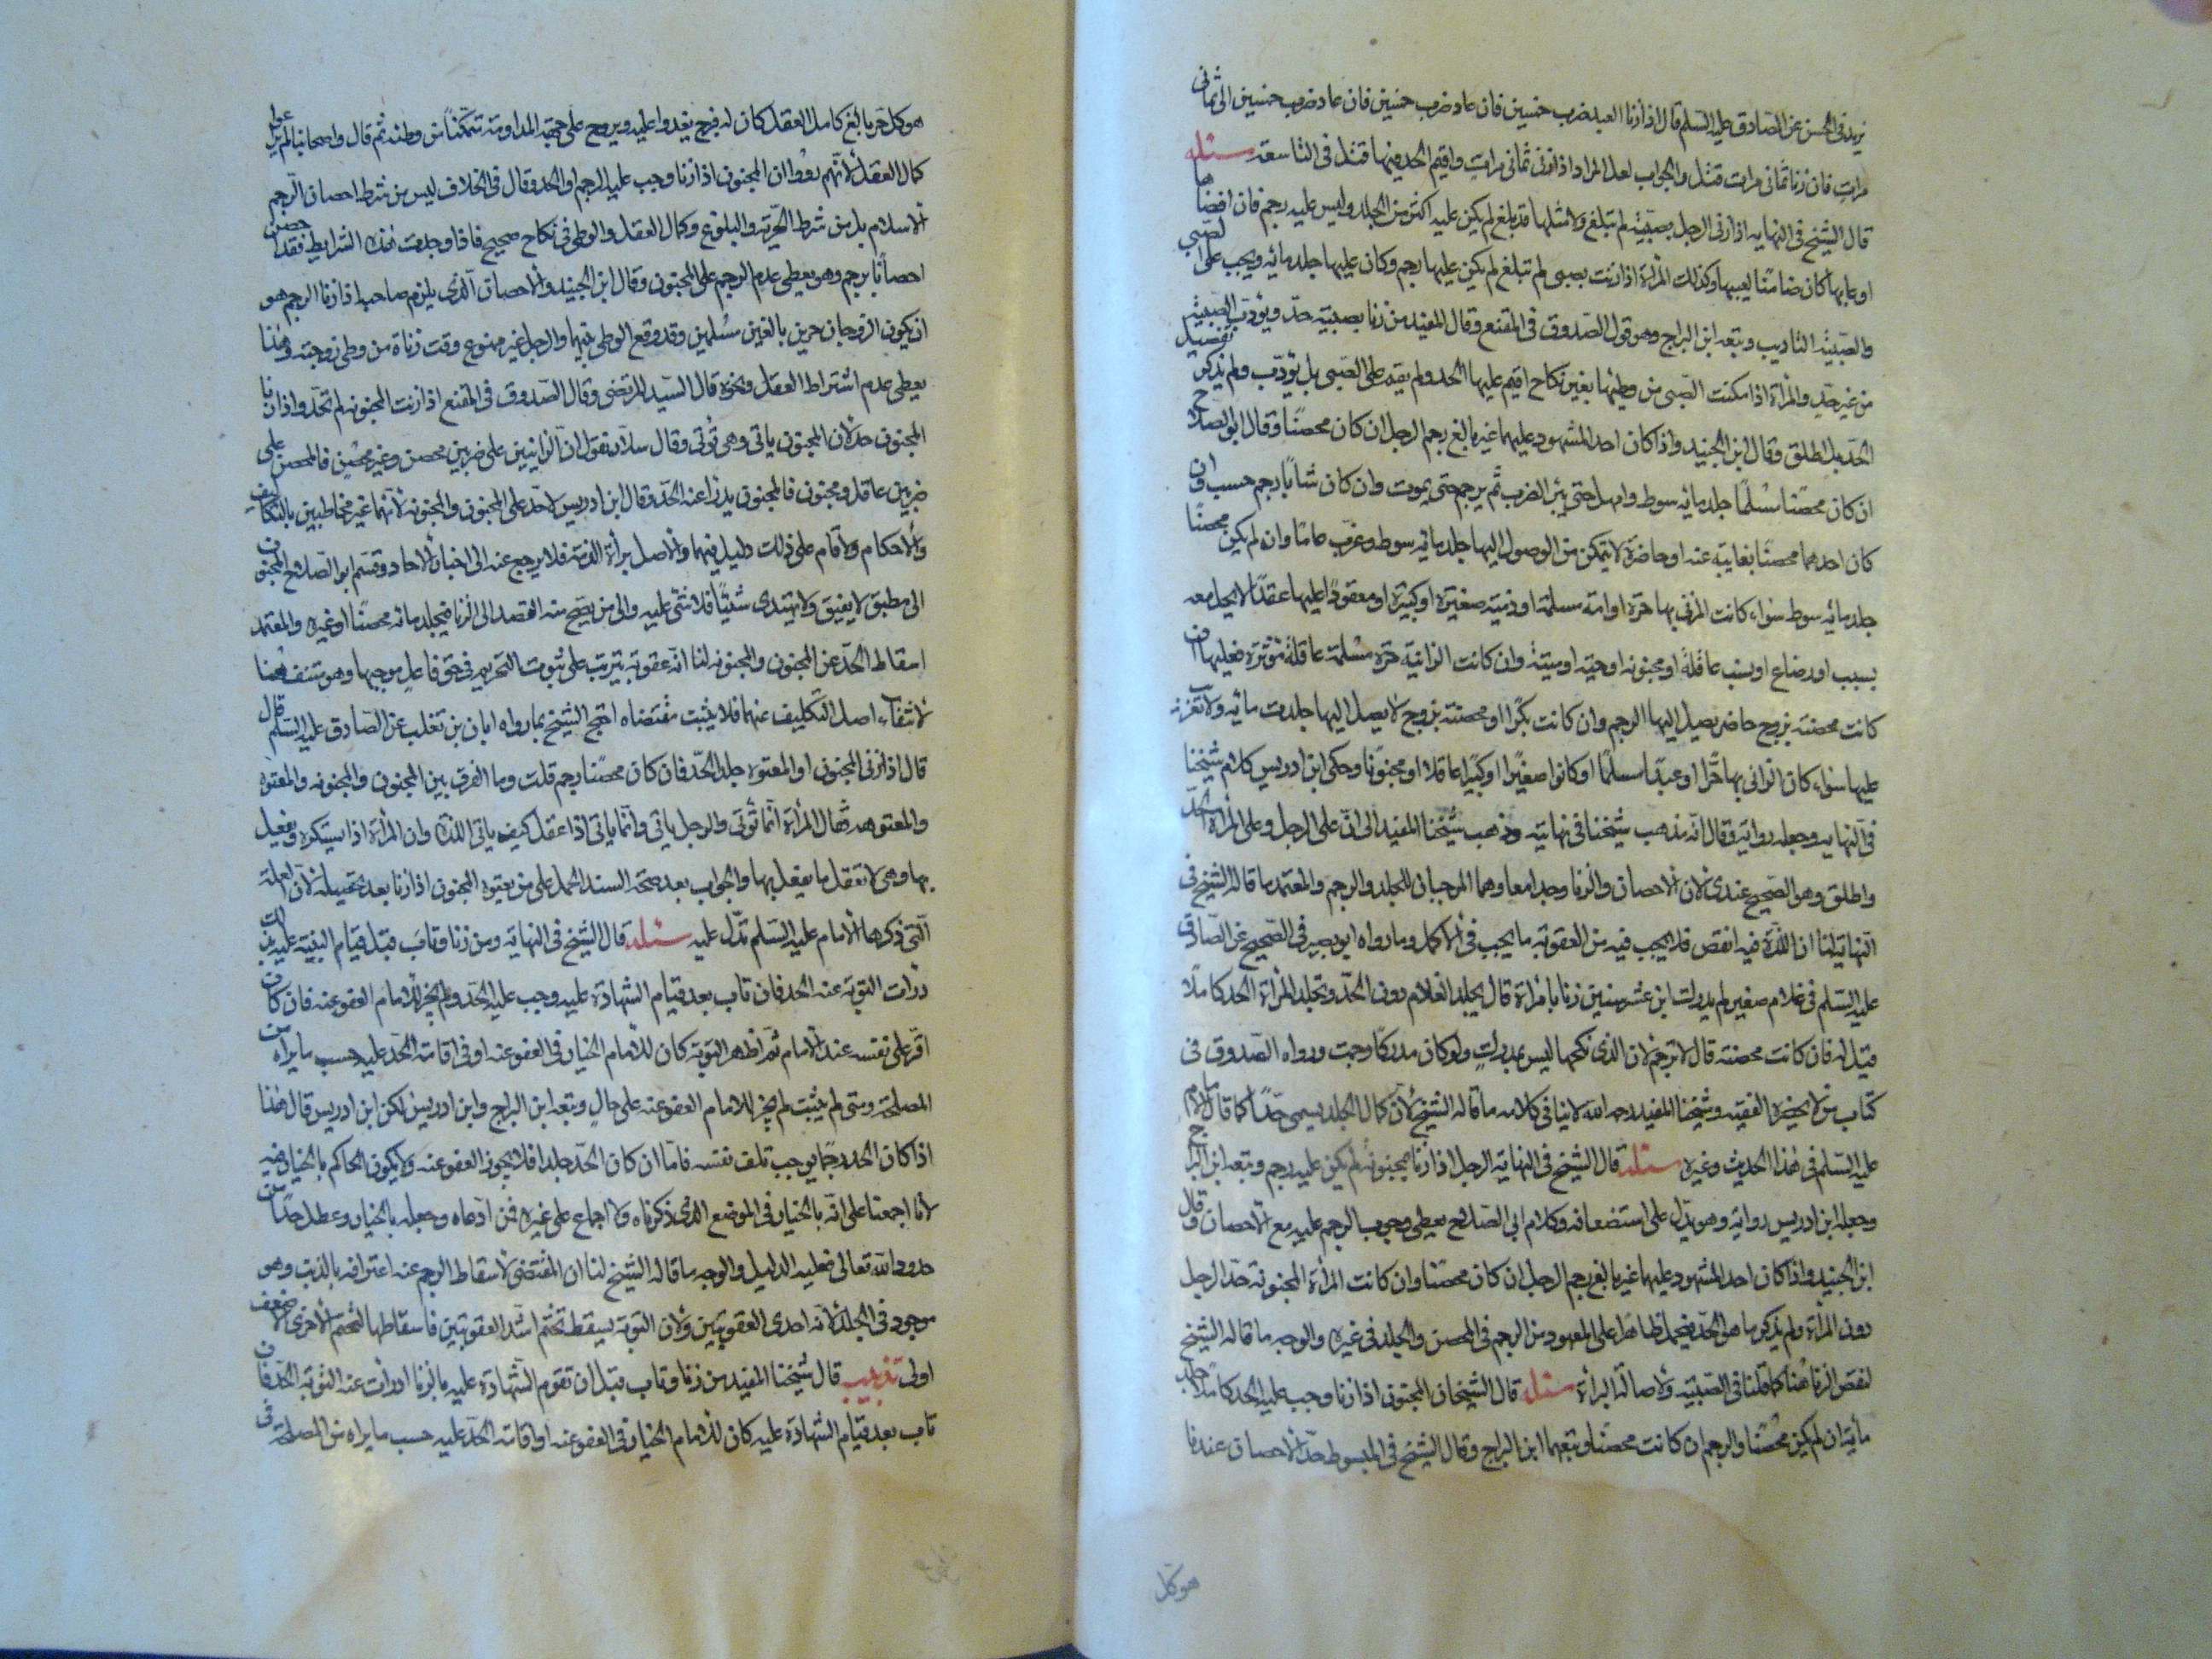 يزيد فى الحسن عن الصادق عليه السلم قال اذا زنا العبد ضرب خمسين فان عاد ضرب خمسين فان عاد ضرب خمسين الى ثمانى
مرات فان زنا ثمانى مرات قتل والجواب لعل المراد اذا زنى ثمانى مرات واقيم الحد فيها قتل فى التاسعة مسئلة
قال الشيخ فى النهاية اذا زنى الرجل بصبية لم تبلغ ولا مثلها قد بلغ لم يكن عليه اكثر من الجلد وليس عليه رجم فان افضاها
او عابها كان ضامنا لعيبها وكذلك المرأة اذا زنت بصبى لم تبلغ لم يكن عليها رجم وكان عليها جلد مائة ويجب على الصبى
والصبية التاديب وتبعه ابن البراج وهو قول الصدوق فى المقنع وقال المفيد من زنا بصبية حد ويؤدب الصبية
من غير حد والمرأة اذا مكنت الصبى من وطئها بغير نكاح اقيم عليها الحد ولم يقم على الصبى بل يؤدب ولم يذكر تفصيل
الحد بل اطلق وقال ابن الجنيد واذا كان احد المشهود عليهما غير بالغ رجم الرجل ان كان محصنا وقال ابو الصلاح
ان كان محصنا مسلما جلد مائة سوط وامهل حتى يبرأ الضرب ثم يرجم حتى يموت وان كان شابا رجم حسب وان
كان احدهما محصنا بغايبة عنه او حاضرة لا يتمكن من الوصول اليها جلد مائة سوط وغرب عاما وان لم يكن محصنا
جلد مائة سوط سواء كانت المزنى بها حرة او امة مسلمة او ذمية صغيرة او كبيرة او معقودا عليها عقدا لا يحل معه
بسبب او رضاع او نسب عاقلة او مجنونة او حية او ميتة وان كانت الزانية حرة مسلمة عاقلة مؤثرة فعليها ان
كانت محصنة بزوج حاضر يصل اليها الرجم وان كانت بكرا او محصنة بزوج لا يصل اليها جلدت مائة ولا تغريب
عليها سواء كان الزانى بها حرا او عبدا مسلما او كانوا صغيرا او كبيرا عاقلا او مجنونا وحكى ابن ادريس كلام شيخنا
فى النهاية وجعله رواية وقال انه مذهب شيخنا فى نهايته وذهب شيخنا المفيد الى ان على الرجل وعلى المرأة الحد
واطلق وهو الصحيح عندى لان الاحصان والزنا وجدا معا وهما الموجبان للجلد والرجم والمعتمد ما قاله الشيخ فى
النهاية لنا ان اللذة فيه انقص فلا يجب فيه من العقوبة ما يجب فى الاكمل وما رواه ابو بصير فى الصحيح عن الصادق
عليه السلم فى غلام صغير لم يدرك ابن عشر سنين زنا بامرأة قال يجلد الغلام دون الحد وتجلد المرأة الحد كاملا
قيل له فان كانت محصنة قال لا ترجم لان الذى نكحها ليس بمدرك ولو كان مدركا رجمت ورواه الصدوق فى
كتاب من لا يحضره الفقيه وشيخنا المفيد رحمه الله لا ينافى كلامه ما قاله الشيخ لان كمال الجلد يسمى حدا كما قال الامام
عليه السلم فى هذا الحديث وغيره مسئلة قال الشيخ فى النهاية الرجل اذا زنا بمجنونة لم يكن عليه رجم وتبعه ابن البراج
وجعله ابن ادريس رواية وهو يدل على استضعافه وكلام ابى الصلاح يعطى وجوب الرجم عليه مع الاحصان وقال
ابن الجنيد واذا كان احد المشهود عليهما غير بالغ رجم الرجل ان كان محصنا وان كانت المرأة المجنونة حد الرجل
دون المرأة ولم يذكر ما هو الحد فيحمل ظاهرا على المعهود من الرجم فى المحصن والجلد فى غيره والوجه ما قاله الشيخ
لنقص الزنا هنا كما قلنا فى الصبية ولاصالة البرأة مسئلة قال الشيخان المجنون اذا زنا وجب عليه الحد كاملا جلد
مائة ان لم يكن محصنا والرجم ان كانت محصنا وتبعهما ابن البراج وقال الشيخ فى المبسوط حد الاحصان عندنا
هو كل
هو كل حر بالغ كامل العقل كان له فرج يغدوا عليه ويروح على جهة المداومة متمكنا من وطئه ثم قال واصحابنا لم يراعوا
كمال العقل لانهم رووا ان المجنون اذا زنا وجب عليه الرجم او الحد وقال فى الخلاف ليس من شرط احصان الرجم
الاسلام بل من شرط الحرية والبلوغ وكمال العقل والوطى فى نكاح صحيح فاذا وجدت هذه الشرايط فقد احصن
احصانا يرجم وهو يعطى عدم الرجم على المجنون وقال ابن الجنيد والاحصان الذى يلزم صاحبه اذا زنا الرجم هو
ان يكون الزوجان حرين بالغين مسلمين وقد وقع الوطى بينهما والرجل غير ممنوع وقت زناه من وطى زوجته وهذا
يعطى عدم اشتراط العقل ونحوه قال السيد المرتضى وقال الصدوق فى المقنع اذا زنت المجنونة لم تحد واذا زنا
المجنون حد لان المجنون ياتى وهى تؤتى وقال سلار نقول ان الزانيين على ضربين محصن وغير محصن فالمحصن على
ضربين عاقل ومجنون فالمجنون يدرأ عنه الحد وقال ابن ادريس لا حد على المجنون والمجنونة لانهما غير مخاطبين بالتكاليف
والاحكام ولا قام على ذلك دليل فيهما والاصل برأة الذمة فلا يرجع عنه الى اخبار الاحاد وقسم ابو الصلاح المجنون
الى مطبق لا يفيق ولا يهتدى شيئا فلا شئ عليه والى من يصح منه القصد الى الزنا فيجلد مائة محصنا او غيره والمعتمد
اسقاط الحد عن المجنون والمجنونة لنا انه عقوبة يترتب على ثبوت التحريم فى حق فاعل موجبها وهو منتف هنا
لانتفاء اصل التكليف عنهما فلا يثبت مقتضاه احتج الشيخ بما رواه ابان بن تغلب عن الصادق عليه السلم قال
قال اذا زنى المجنون او المعتوه جلد الحد فان كان محصنا رجم قلت وما الفرق بين المجنون والمجنونة والمعتوه
والمعتوهة فقال المرأة انما تؤتى والرجل ياتى وانما ياتى اذا عقل كيف ياتى اللذة وان المرأة اذا يستكره ويفعل
بها وهى لا تعقل ما يفعل بها والجواب بعد صحة السند الحمل على من يعتوه المجنون اذا زنا بعد تحصيله لان العلة
التى ذكرها الامام عليه السلم تدل عليه مسئلة قال الشيخ فى النهاية ومن زنا وتاب قبل قيام البينة عليه بذلك
درأت التوبة عنه الحد فان تاب بعد قيام الشهادة عليه وجب عليه الحد ولم يجز للامام العفو عنه فان كان
اقر على نفسه عند الامام ثم اظهر التوبة كان للامام الخيار فى العفو عنه او فى اقامة الحد عليه حسب ما يراه من
المصلحة ومتى لم يثبت لم يجز للامام العفو عنه على حال وتبعه ابن البراج وابن ادريس لكن ابن ادريس قال هذا
اذا كان الحد رجما يوجب تلف نفسه فاما ان كان الحد جلدا فلا يجوز العفو عنه ولا يكون الحاكم بالخيار فيه
لانا اجمعنا على انه بالخيار فى الموضع الذى ذكرناه ولا اجماع على غيره فمن ادعاه وجعله بالخيار وعطل حدا من
حدود الله تعالى فعليه الدليل والوجه ما قاله الشيخ لنا ان المقتضى لاسقاط الرجم عنه اعترافه بالذنب وهو
موجود فى الجلد لانه احدى العقوبتين ولان التوبة يسقط تحتم اشد العقوبتين فاسقاطها لتحتم الاخرى الاضعف
اولى تذهيب قال شيخنا المفيد من زنا وتاب قبل ان تقوم الشهادة عليه بالزنا درأت عنه التوبة الحد فان
تاب بعد قيام الشهادة عليه كان للامام الخيار فى العفو عنه او اقامة الحد عليه حسب ما يراه من المصلحة فى